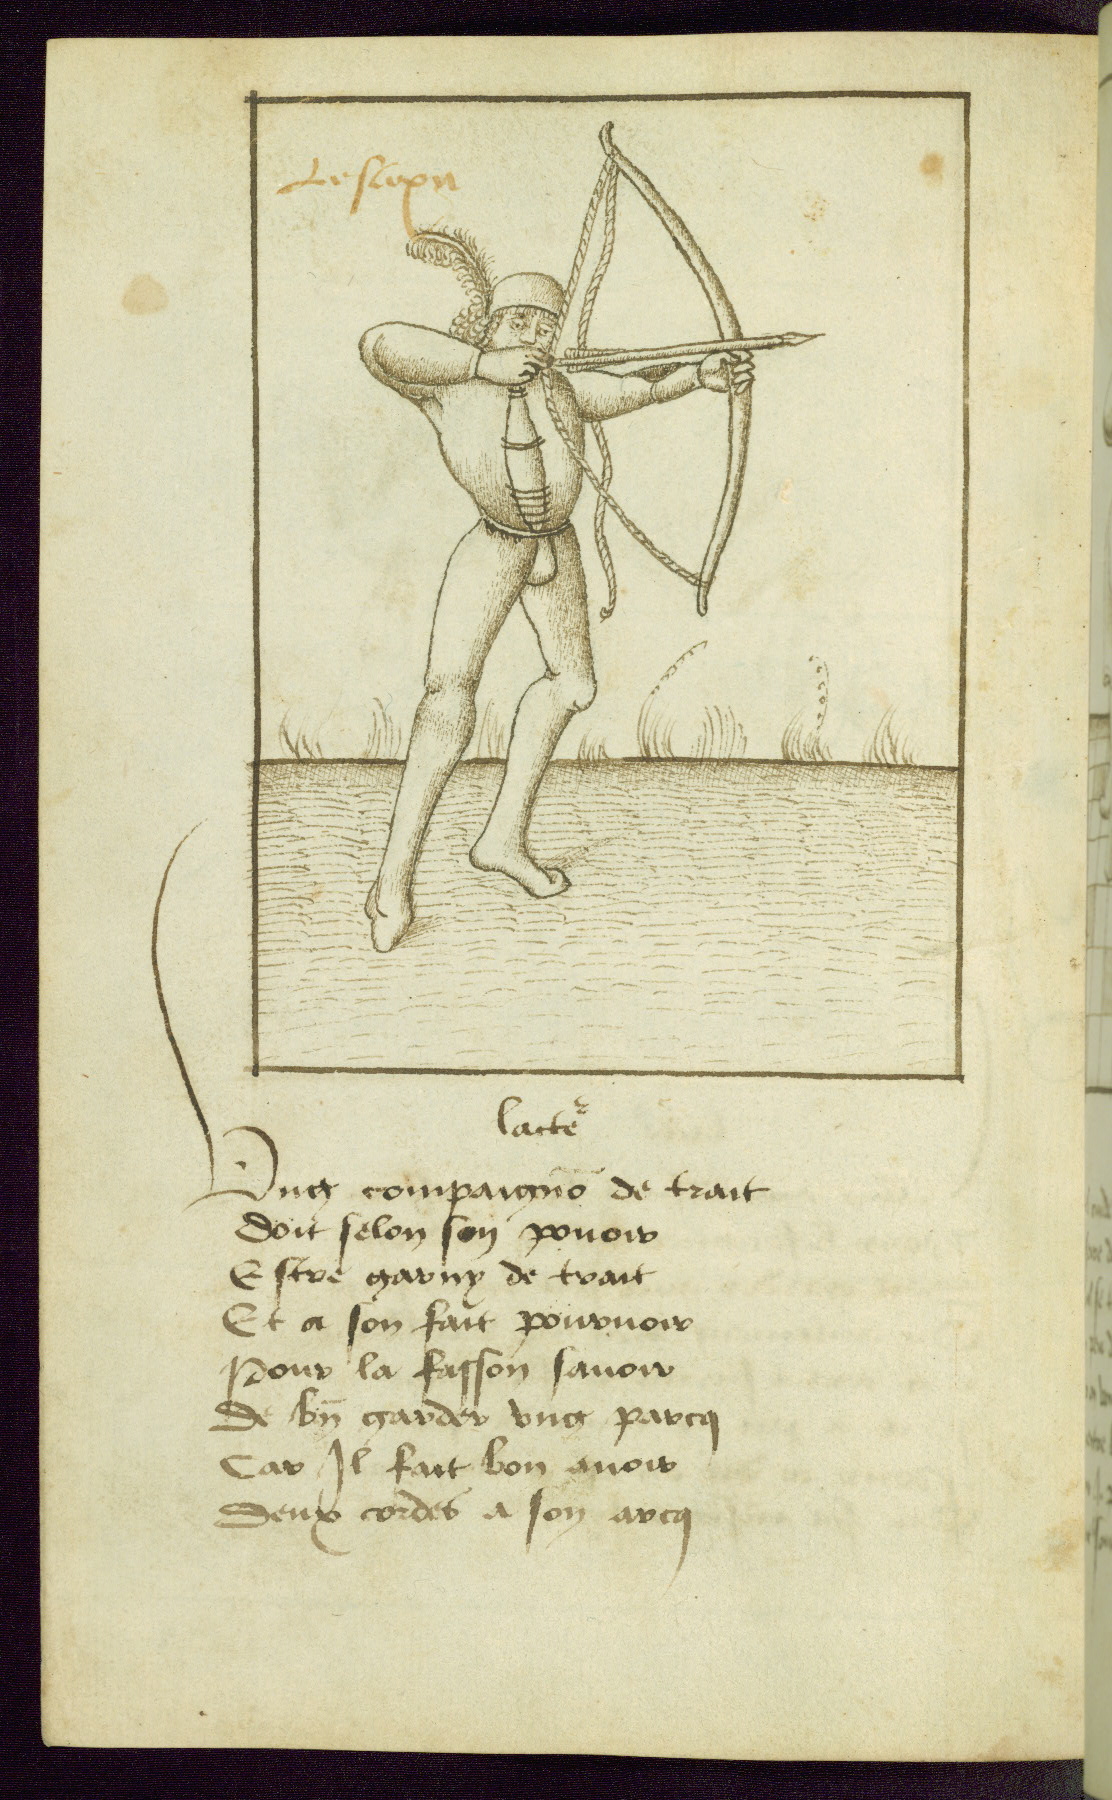 lacte᷑
Vng compaignō de trait
Doit selon son pouoir
Estre garny de trait
Et a son fait pouruoir
Pour la fasson sauoir
De bn̄ garder vng parcq
Car Il fait bon auoir
Deux cordes a son arcq